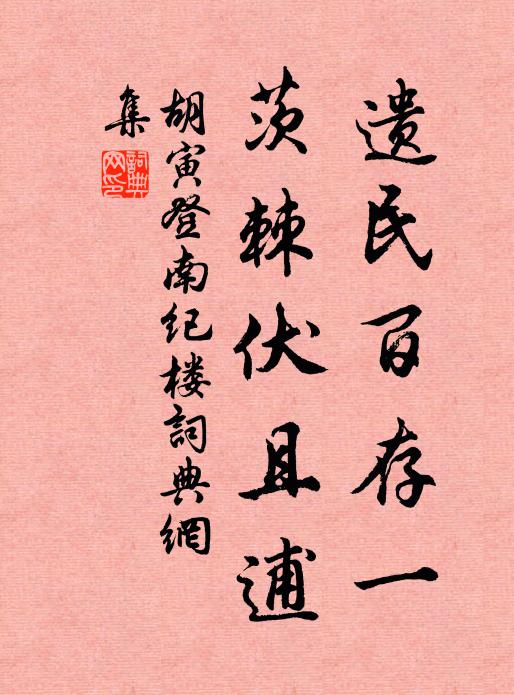 遗民百存一
茨棘伏且逋
胡寅登南纪楼詞典網
集
詞典
网印